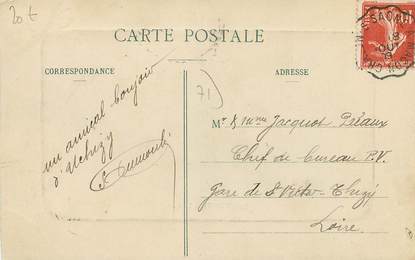 20t
CARTE POSTALE
CORRESPONDANCE
ADRESSE
71)
un amical bonjour
d'Uchizy
Mr & Mme Jacquot Pétaux
Chef de bureau P.V.
Gare de St Victor-Thizy
Loire